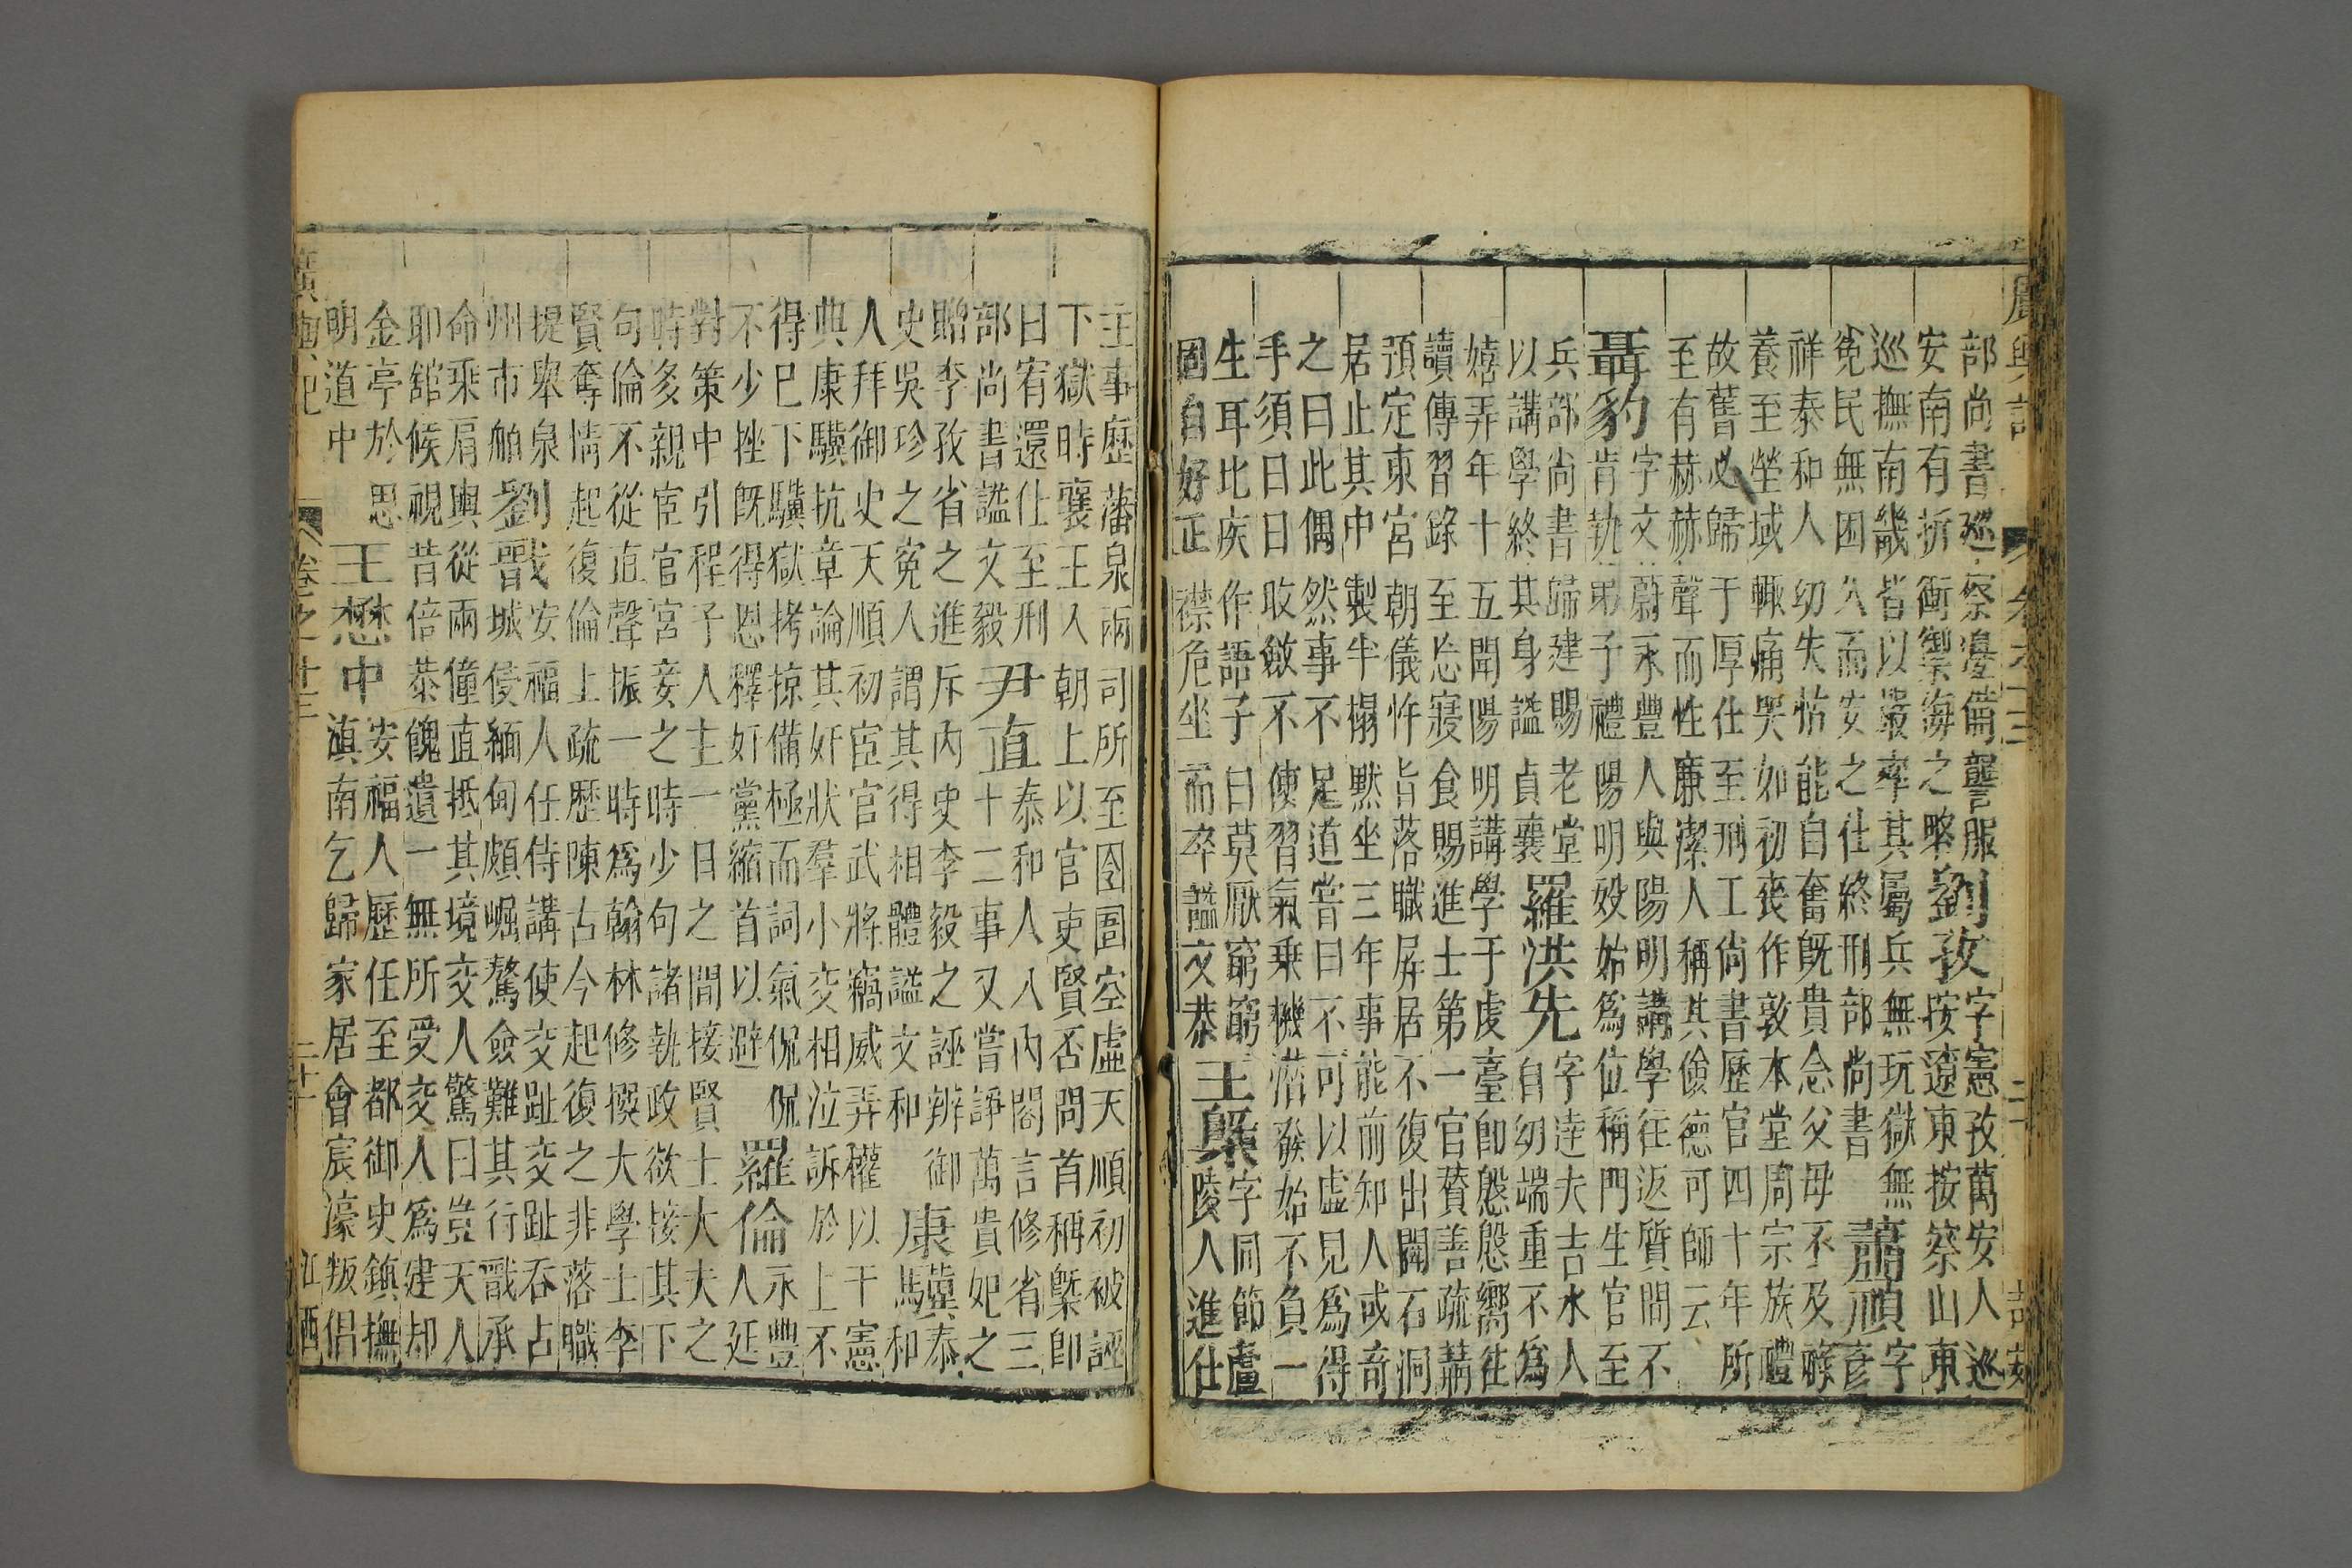 廣輿記 卷之十三 二十 吉安
部尚書巡察邊備讋服
安南有折衝禦海之略
劉孜
字憲孜萬安人巡
按遼東按察山東
巡撫南畿皆以嚴率其屬兵無玩獄無
免民無困久而安之仕終刑部尚書
蕭禎
字
彥
祥泰和人幼失怙能自奮既貴念父母不及祿
養至塋域輒痛哭如初喪作敦本堂周宗族禮
故舊必歸于厚仕至刑工尚書歷官四十年所
至有赫赫聲而性廉潔人稱其儉德可師云
聶豹
字文蔚永豐人與陽明講學往返質問不
肯執弟子禮陽明歿始爲位稱門生官至
兵部尚書歸建賜老堂
以講學終其身謚貞襄
羅洪先
字達夫吉水人
自幼端重不爲
嬉弄年十五聞陽明講學于虔臺卽慇慇嚮往
讀傳習錄至忘寢食賜進士第一官贊善疏講
預定東宮朝儀忤旨落職屏居不復出闢石洞
居止其中製半榻默坐三年事能前知人或奇
之曰此偶然事不足道嘗曰不可以虛見爲得
手須日日收斂不使習氣乗機潛發始不負一
生耳比疾作語子曰莫厭窮窮
固自好正襟危坐而卒謚文恭
王槩
字同節盧
陵人進仕
主事歷藩臬兩司所至囹圄空虛天順初被誣
下獄時襄王入朝上以官吏賢否問首稱槩卽
日宥還仕至刑
部尚書謚文毅
尹直
泰和人入內閣言修省三
十二事又嘗諍萬貴妃之
贈李孜省之進斥内史李毅之誣辨御
史吳珍之寃人謂其得相體謚文和
康驥
泰
和
人拜御史天順初宦官武將竊威弄權以干憲
典康驥抗章論其奸狀羣小交相泣訴於上不
得已下驥獄拷掠備極而詞氣侃侃
不少挫既得恩釋奸黨縮首以避
羅倫
永豐
人廷
對策中引程子人主一日之間接賢士大夫之
時多親宦官宮妾之時少句諸執政欲接其下
句倫不從直聲振一時爲翰林修撰大學士李
賢奪情起復倫上疏歷陳古今起復之非落職
提舉泉
州市舶
劉戩
安福人任侍講使交趾交趾吞占
城侵緬甸頗崛驁僉難其行戩承
命乘肩輿從兩僮直抵其境交人驚曰豈天人
耶舘候視昔倍恭餽遺一無所受交人爲建却
金亭於思
明道中
王懋中
安福人歷任至都御史鎮撫
滇南乞歸家居會宸濠叛侶
廣輿記 卷之十三 二十一 江西